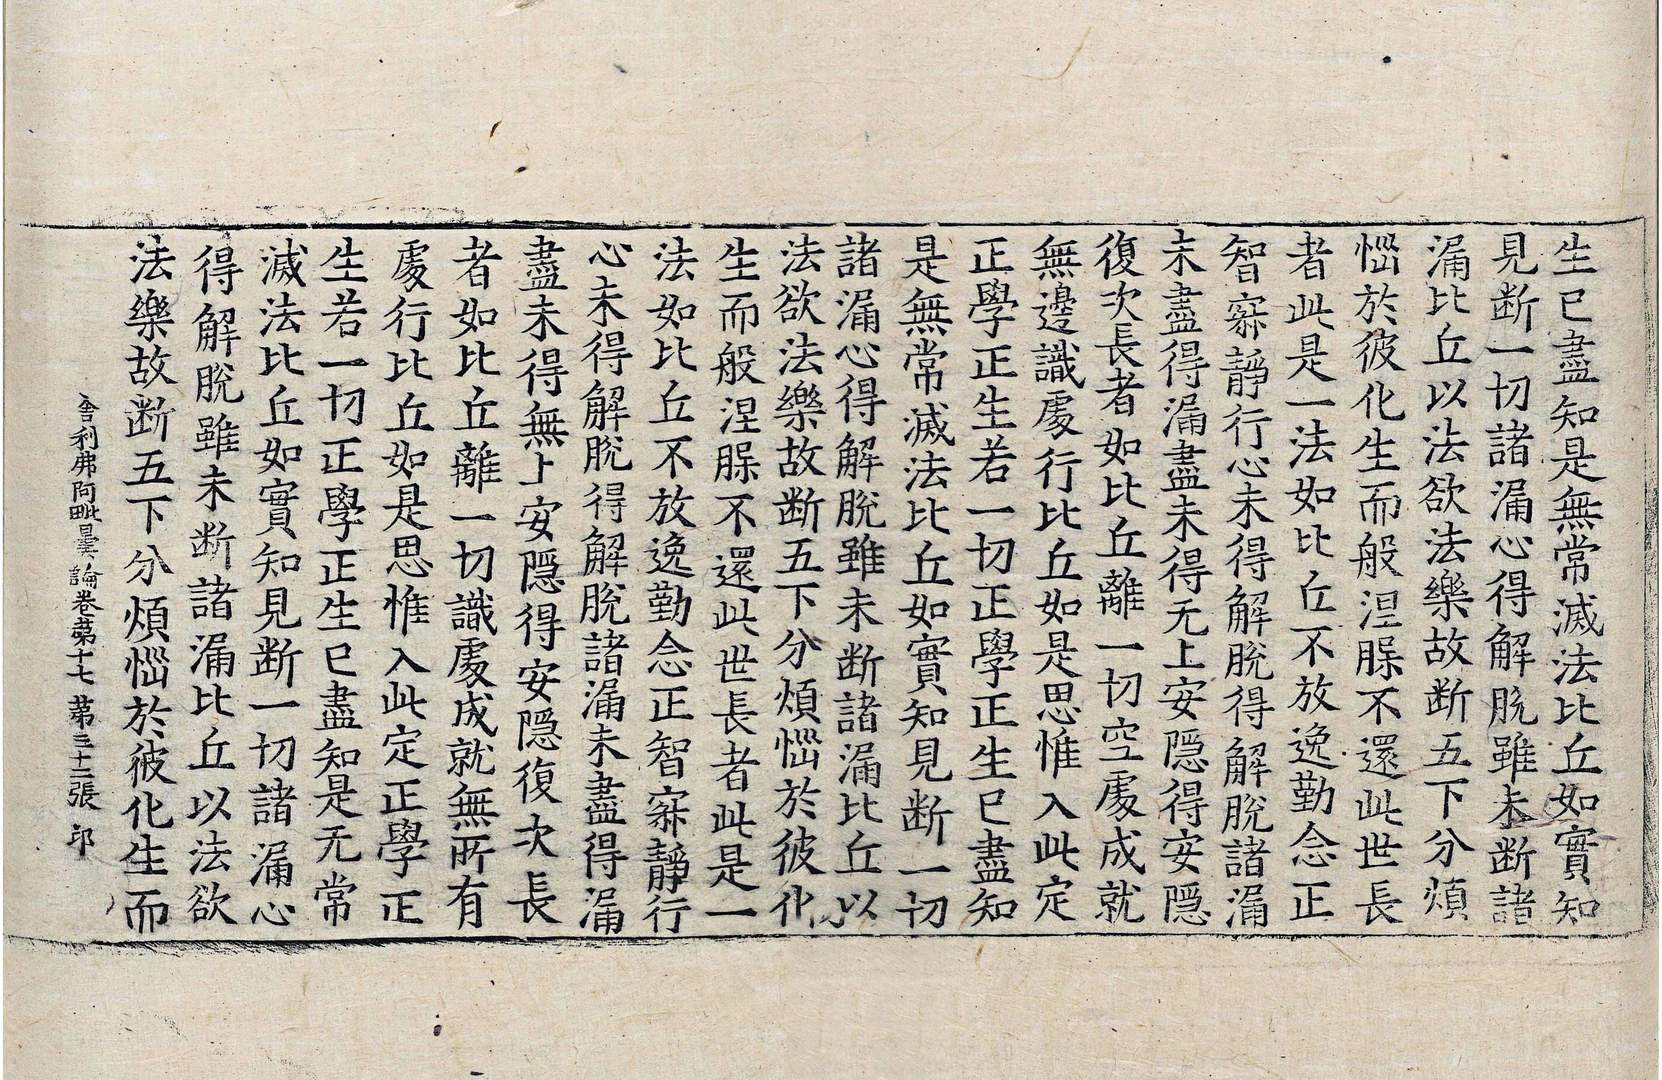 生已盡知是無常滅法比丘如實知
見断一切諸漏心得解脫雖未断諸
漏比丘以法欲法樂故断五下分煩
惱於彼化生而般涅槃不還此世長
者此是一法如比丘不放逸勤念正
智寂靜行心未得解脫得解脫諸漏
未盡得漏盡未得无上安隱得安隱
復次長者如比丘離一切空處成就
無邊識處行比丘如是思惟入此定
正學正生若一切正學正生已盡知
是無常滅法比丘如實知見断一切
諸漏心得解脫雖未断諸漏比丘以
法欲法樂故断五下分煩惱於彼化
生而般涅槃不還此世長者此是一
法如比丘不放逸勤念正智寂靜行
心未得解脫得解脫諸漏未盡得漏
盡未得無上安隱得安隱復次長
者如比丘離一切識處成就無所有
處行比丘如是思惟入此定正學正
生若一切正學正生已盡知是无常
滅法比丘如實知見断一切諸漏心
得解脫雖未断諸漏比丘以法欲
法樂故断五下分煩惱於彼化生而
舍利弗阿毗曇論卷第十七 第三十二張 邛